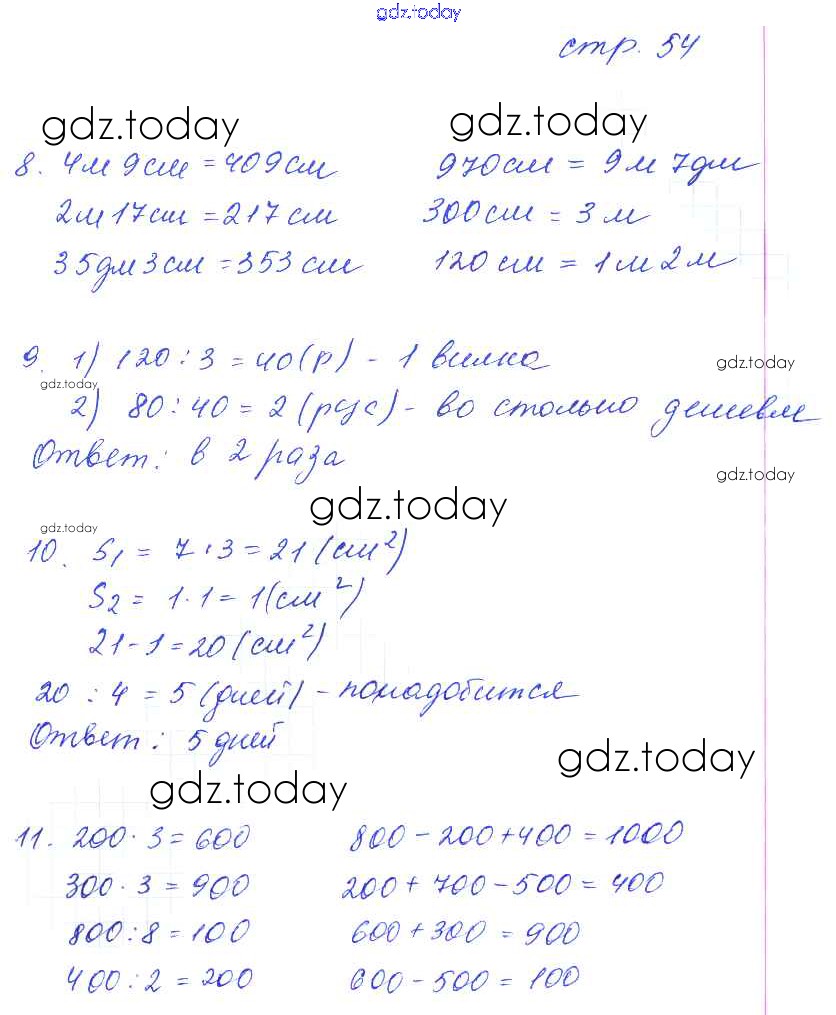 gdz.today
стр. 54
gdz.today gdz.today
8. 4м 9см = 409см 970см = 9м 7дм
2м 17см = 217см 300см = 3м
35дм 3см = 353см 120см = 1м 2м
9. 1) 120 : 3 = 40(р) - 1 вилка
gdz.today
gdz.today
2) 80 : 40 = 2 (рус) - во столько дешевле
Ответ: в 2 раза
gdz.today
gdz.today
gdz.today
10. S₁ = 7 · 3 = 21 (см²)
S₂ = 1 · 1 = 1(см²)
21 - 1 = 20 (см²)
20 : 4 = 5 (дней) - понадобится
Ответ: 5 дней
gdz.today
gdz.today
11. 200 · 3 = 600 800 - 200 + 400 = 1000
300 · 3 = 900 200 + 700 - 500 = 400
800 : 8 = 100 600 + 300 = 900
400 : 2 = 200 600 - 500 = 100